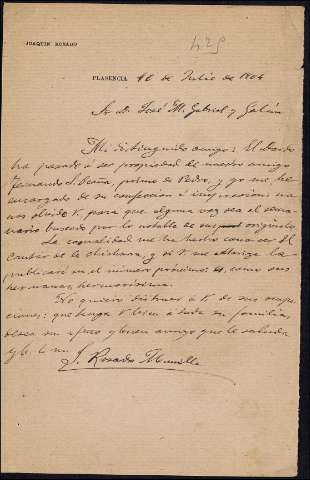 JOAQUIN ROSADO
425
PLASENCIA 16 de Julio de 1904
Sr. Dn. José M. Gabriel y Galán
Mi distinguido amigo: El Dardo
ha pasado á ser propiedad de nuestro amigo
Fernando S. Ocaña, primo de Pedro, y yo me he
encargado de su confección é impresión: no
nos olvide V. para que alguna vez sea el sema-
nario buscado por lo notable de sus original.
La casualidad me ha hecho conocer El
Cantar de la chicharra, y si V. me autoriza la
publicaré en el número próximo, como sus
hermanas, hermosísima.
No quiero distraer á V. de sus ocupa-
ciones: que tenga V. bien á toda su familia
desea su afmo y buen amigo que le saluda
y b. l. m.
J. Rosado Munilla